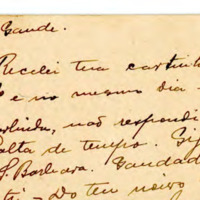 Saude.
Recebi tua cartinh
e no mesmo dia
não respondi
alta de tempo.
S. Barbara. Saudad
Do teu noivo